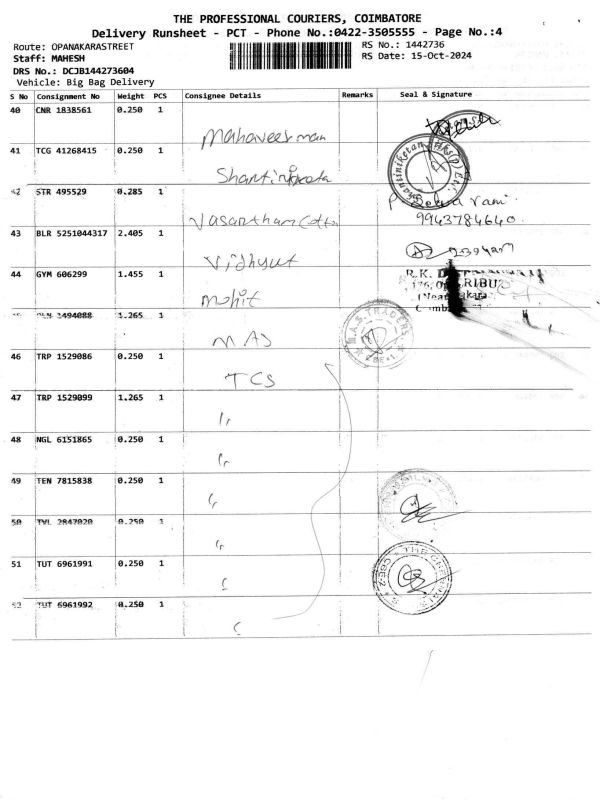 THE PROFESSIONAL COURIERS, COIMBATORE
Delivery Runsheet - PCT - Phone No.:0422-3505555 - Page No.:4
Route: OPANAKARASTREET
RS No.: 1442736
Staff: MAHESH
RS Date: 15-Oct-2024
DRS No.: DCJB144273604
Vehicle: Big Bag Delivery
S No Consignment No Weight PCS Consignee Details Remarks Seal & Signature
40 CNR 1838561 0.250 1
41 TCG 41268415 0.250 1
42 STR 495529 0.285 1 9943784640
Vasantham
43 BLR 5251044317 2.405 1
Vidhyut
44 GYM 606299 1.455 1 R.K.
Mohit
3494088 1.265 1 M.A.S. TRADERS
MAS
46 TRP 1529086 0.250 1
TCS
47 TRP 1529099 1.265 1
48 NGL 6151865 0.250 1
49 TEN 7815838 0.250 1
50 TVL 2847020 0.250 1
51 TUT 6961991 0.250 1
52 TUT 6961992 0.250 1